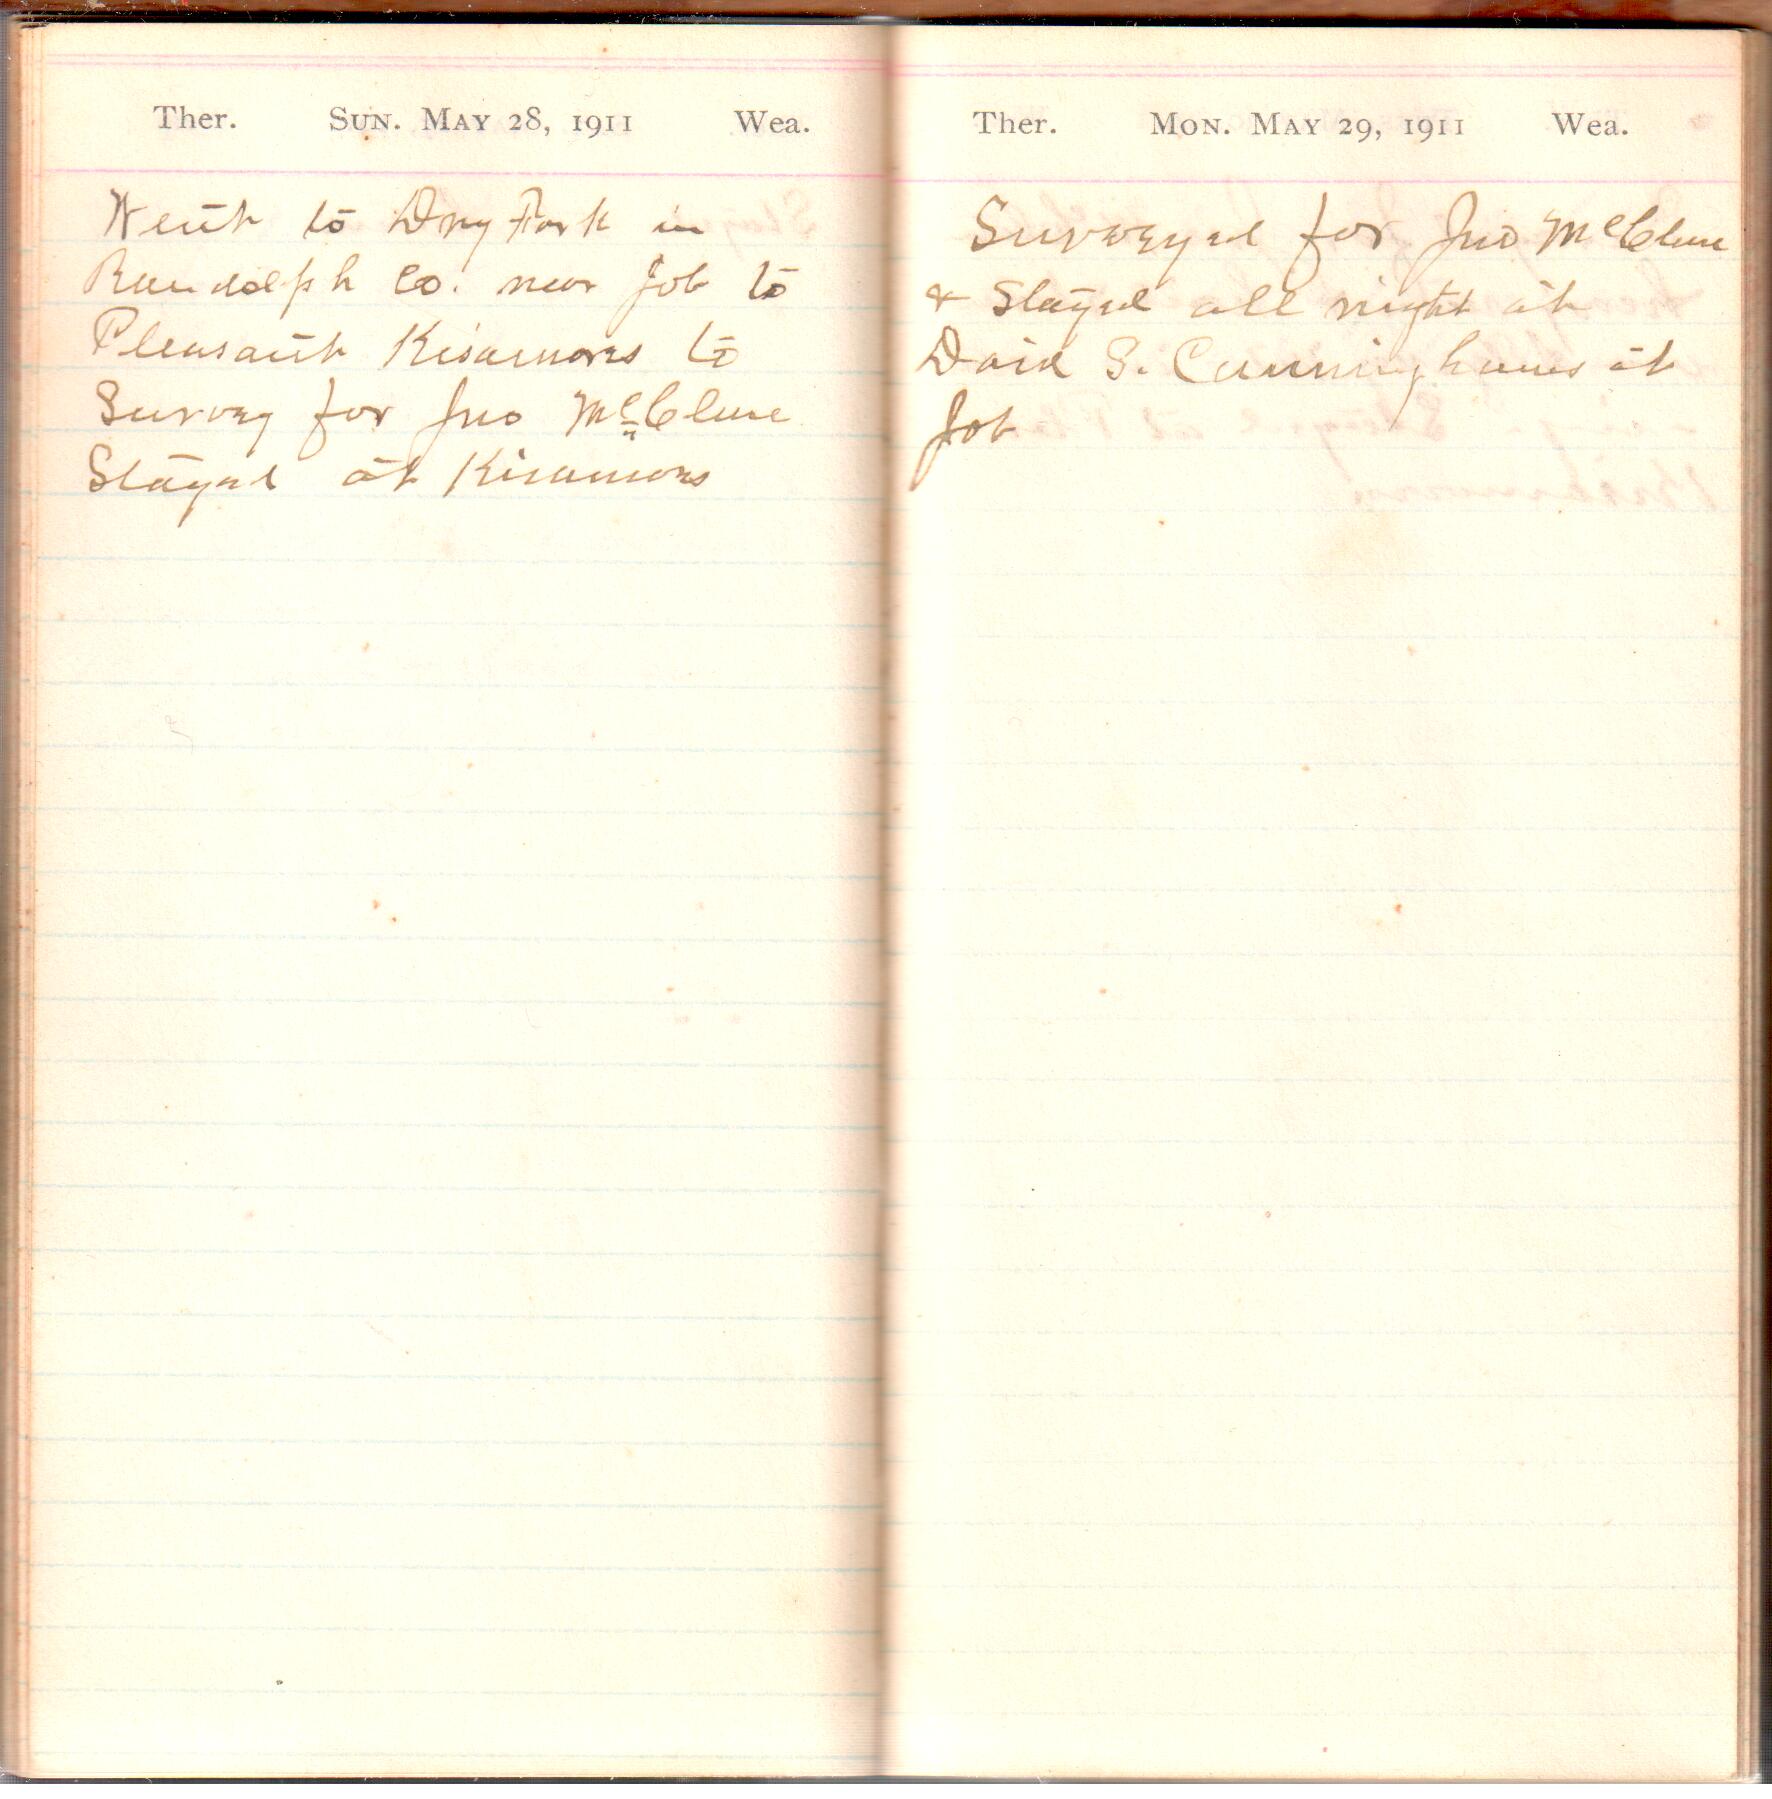 Ther. Sun. May 28, 1911 Wea.
Went to Dry Fork in
Randolph Co. near Job to
Pleasant Kisamores to
Survey for Jno McClure
Stayed at Kisamores
Ther. Mon. May 29, 1911 Wea.
Surveyed for Jno McClure
& Stayed all night at
David S. Cunninghams at
Job